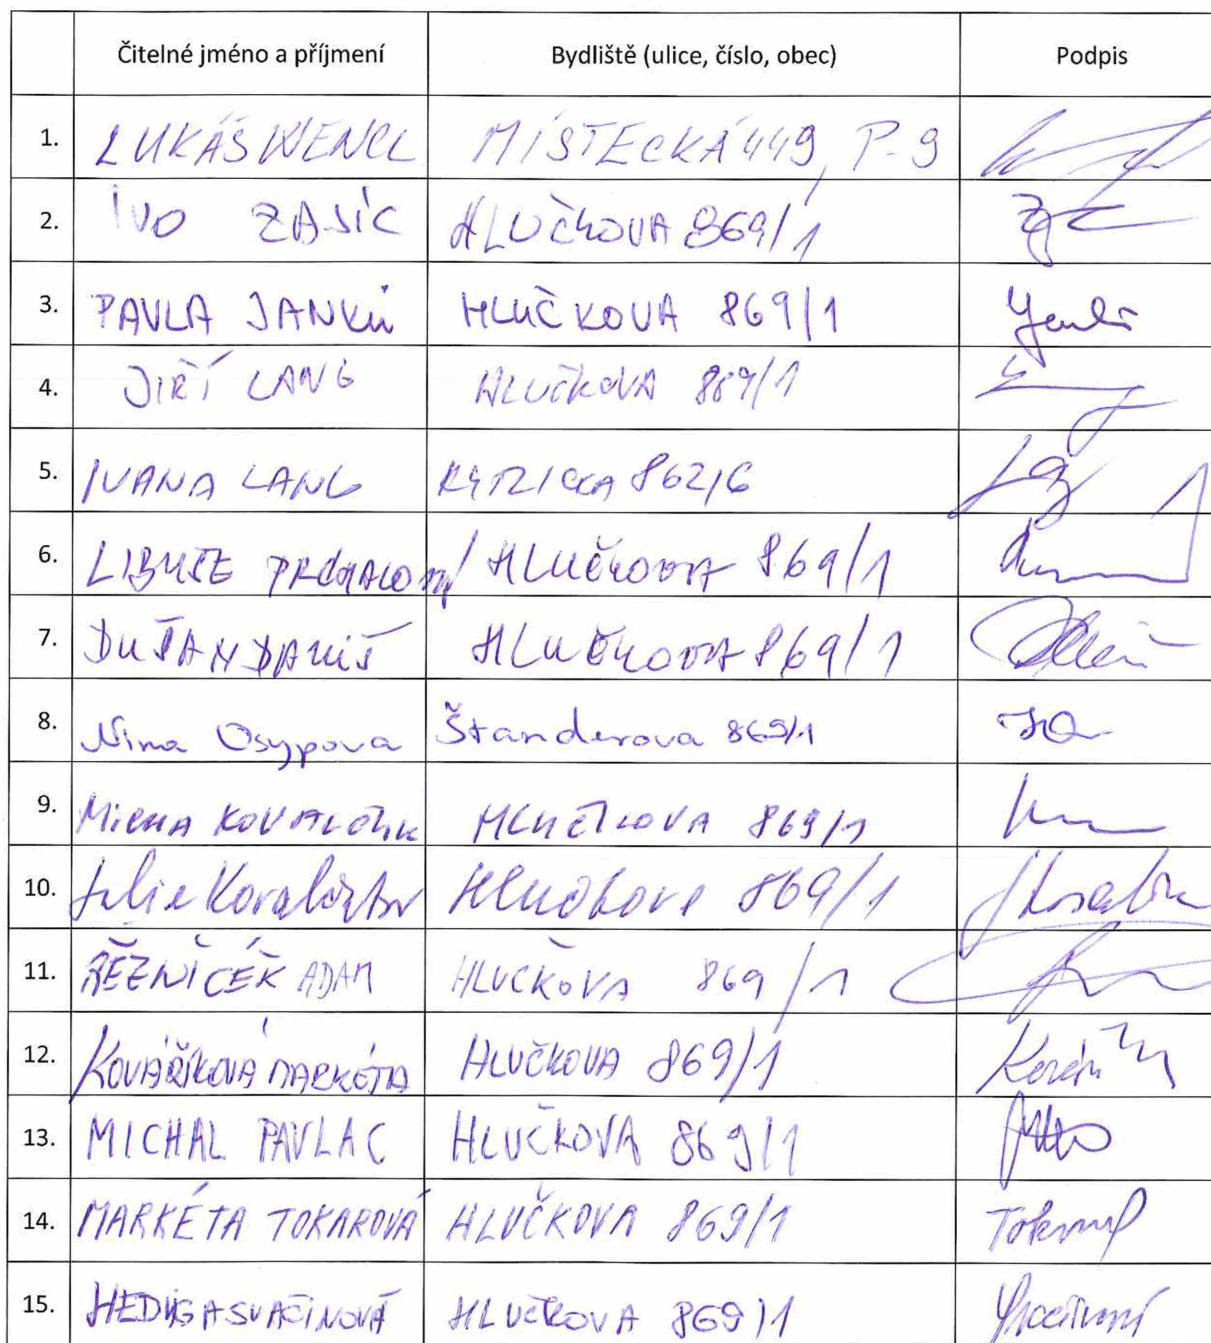 Čitelné jméno a příjmení Bydliště (ulice, číslo, obec) Podpis
1. LUKÁŠ WENCL MÍSTECKÁ 449, P-9
2. IVO ZAJÍC HLUČKOVA 869/1
3. PAVLA JANKŮ HLUČKOVA 869/1
4. JIŘÍ LANG HLUČKOVA 869/1
5. IVANA LANG 862/6
6. LIBUŠE HLUČKOVA 869/1
7. DUŠAN DANIŠ HLUČKOVA 869/1
8. Nina Osypova Štanderova 869/1
9. HLUČKOVA 869/1
10. Julie Hlučkova 869/1
11. ŘEZNÍČEK ADAM HLUČKOVA 869/1
12. KOVÁŘÍKOVÁ MARKÉTA HLUČKOVA 869/1
13. MICHAL PAVLAC HLUČKOVA 869/1
14. MARKÉTA TOKAROVÁ HLUČKOVA 869/1
15. SVAČINOVÁ HLUČKOVA 869/1